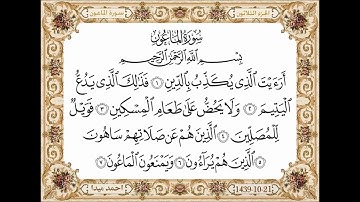 الجزء الثلاثون
سورة الماعون
سُورَةُ الْمَاعُونِ
بِسْمِ اللَّهِ الرَّحْمَٰنِ الرَّحِيمِ
أَرَءَيْتَ الَّذِي يُكَذِّبُ بِالدِّينِ ١ فَذَٰلِكَ الَّذِي يَدُعُّ
الْيَتِيمَ ٢ وَلَا يَحُضُّ عَلَىٰ طَعَامِ الْمِسْكِينِ ٣ فَوَيْلٌ
لِّلْمُصَلِّينَ ٤ الَّذِينَ هُمْ عَن صَلَاتِهِمْ سَاهُونَ
٥ الَّذِينَ هُمْ يُرَآءُونَ ٦ وَيَمْنَعُونَ الْمَاعُونَ ٧
1439-10-21